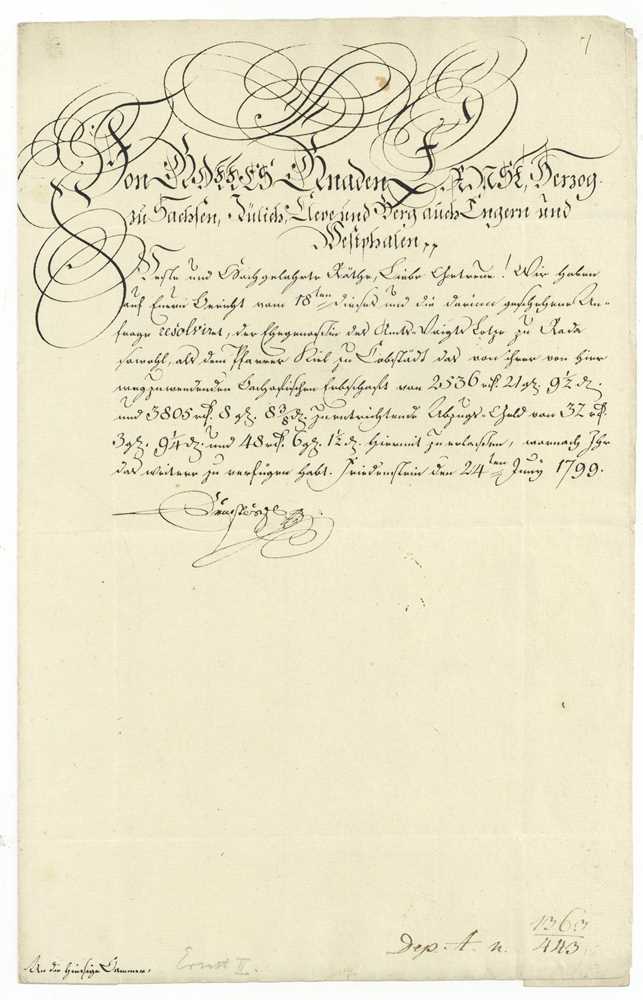 Von GOTTES Gnaden ERNST, Herzog
zu Sachsen, Jülich, Cleve und Berg auch Engern und
Westphalen,,
Veste und Hochgelahrte Räthe, Liebe Getreue! Wir haben
auf Euern Bericht vom 18ten dieses und die darinn geschehene An-
frage resolviret, der Ehegenoßin des Amts-Voigts Lotze zu Roda
sowohl, als dem Pfarrer Kiel zu Tobstädt das von ihrer von hier
wegzuwendenden Erbschaft von 2536 rt. 21 g. 9½ d.
und 3805 rt. 8 g. 8⅜ d. zu entrichtende Abzugs-Geld von 32 rt.
3 g. 9¼ d. und 48 rt. 6 g. 1½ d. hiermit zu erlaßen, wornach Ihr
das weitere zu verfügen habt. Friedenstein den 24ten Juny 1799.
An die hiesige Cammer.
Ernst II.
Dep. A. n. 1363
443